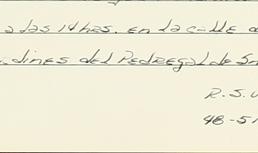 a las 14 hrs. en la calle
dines del Pedregal de Sn
R. S. V
48-51